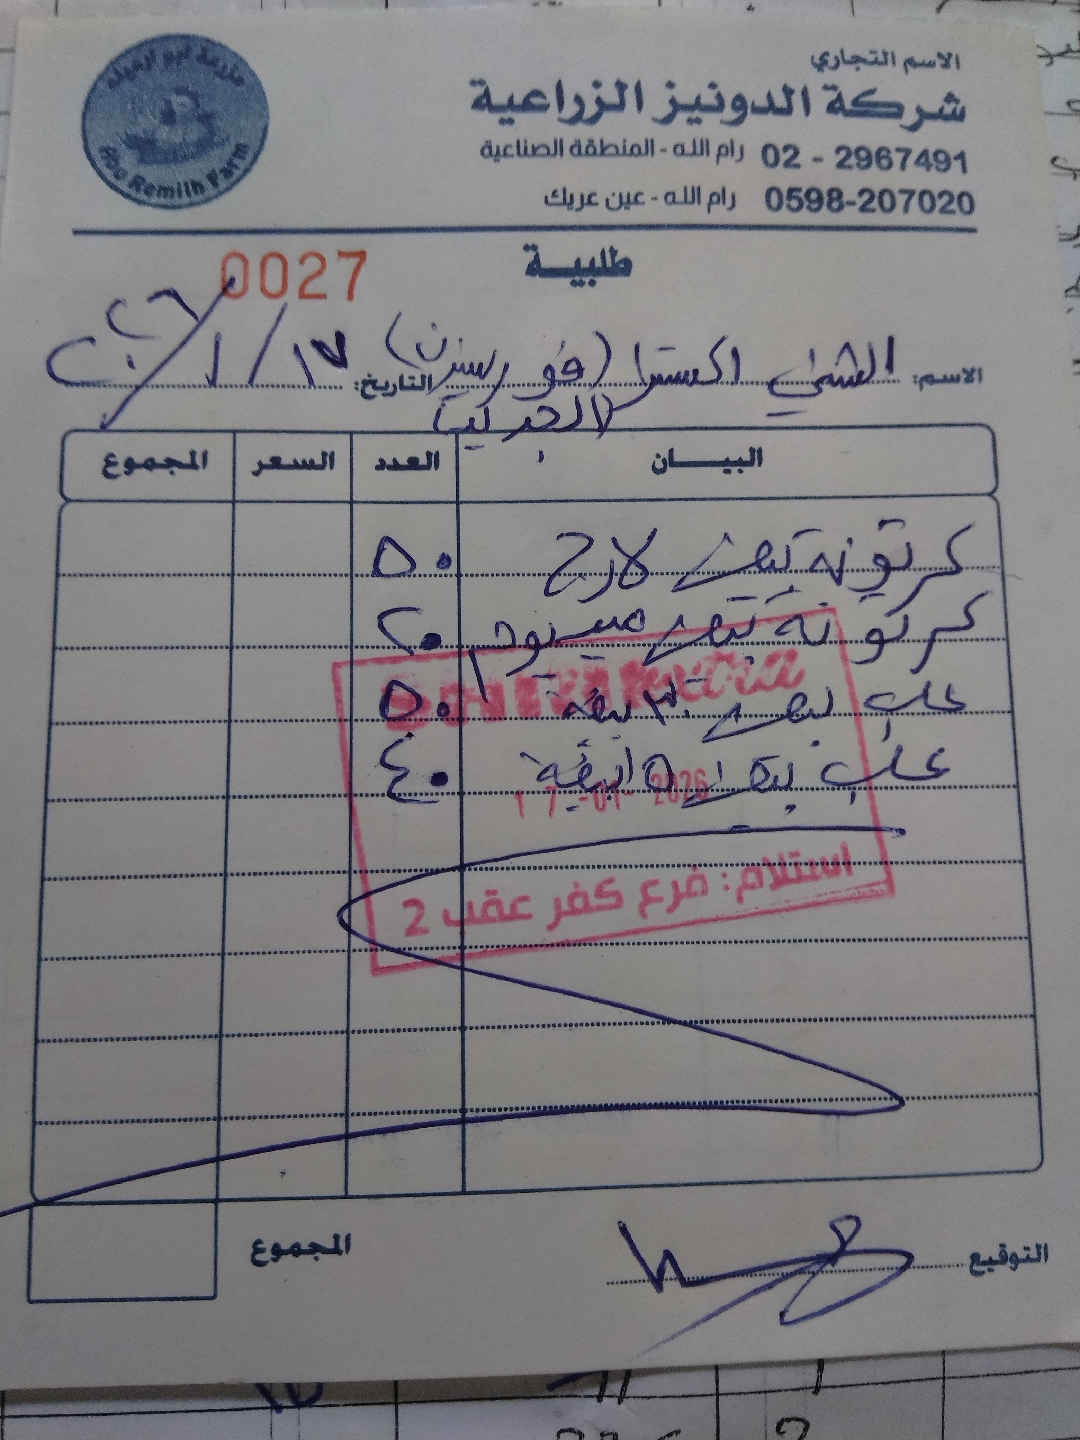 مزرعة ابو ارميله
Abo Remilh Farm
الاسم التجاري
شركة الدونيز الزراعية
02 - 2967491 رام الله - المنطقة الصناعية
0598-207020 رام الله - عين عريك
0027
طلبية
الاسم: الشني اكسترا (فور سيزن) التاريخ: ١٧/١/٢٠٢٦
البيـــان العدد السعر المجموع
كرتونة بيض لارج ٥٠
كرتونة بيض ميديوم ٢٠
علب بيض ٣٠ بيضة ٥٠
علب بيض ١٥ بيضة ٤٠
17 -01- 2026
استلام: فرع كفر عقب 2
المجموع
التوقيع